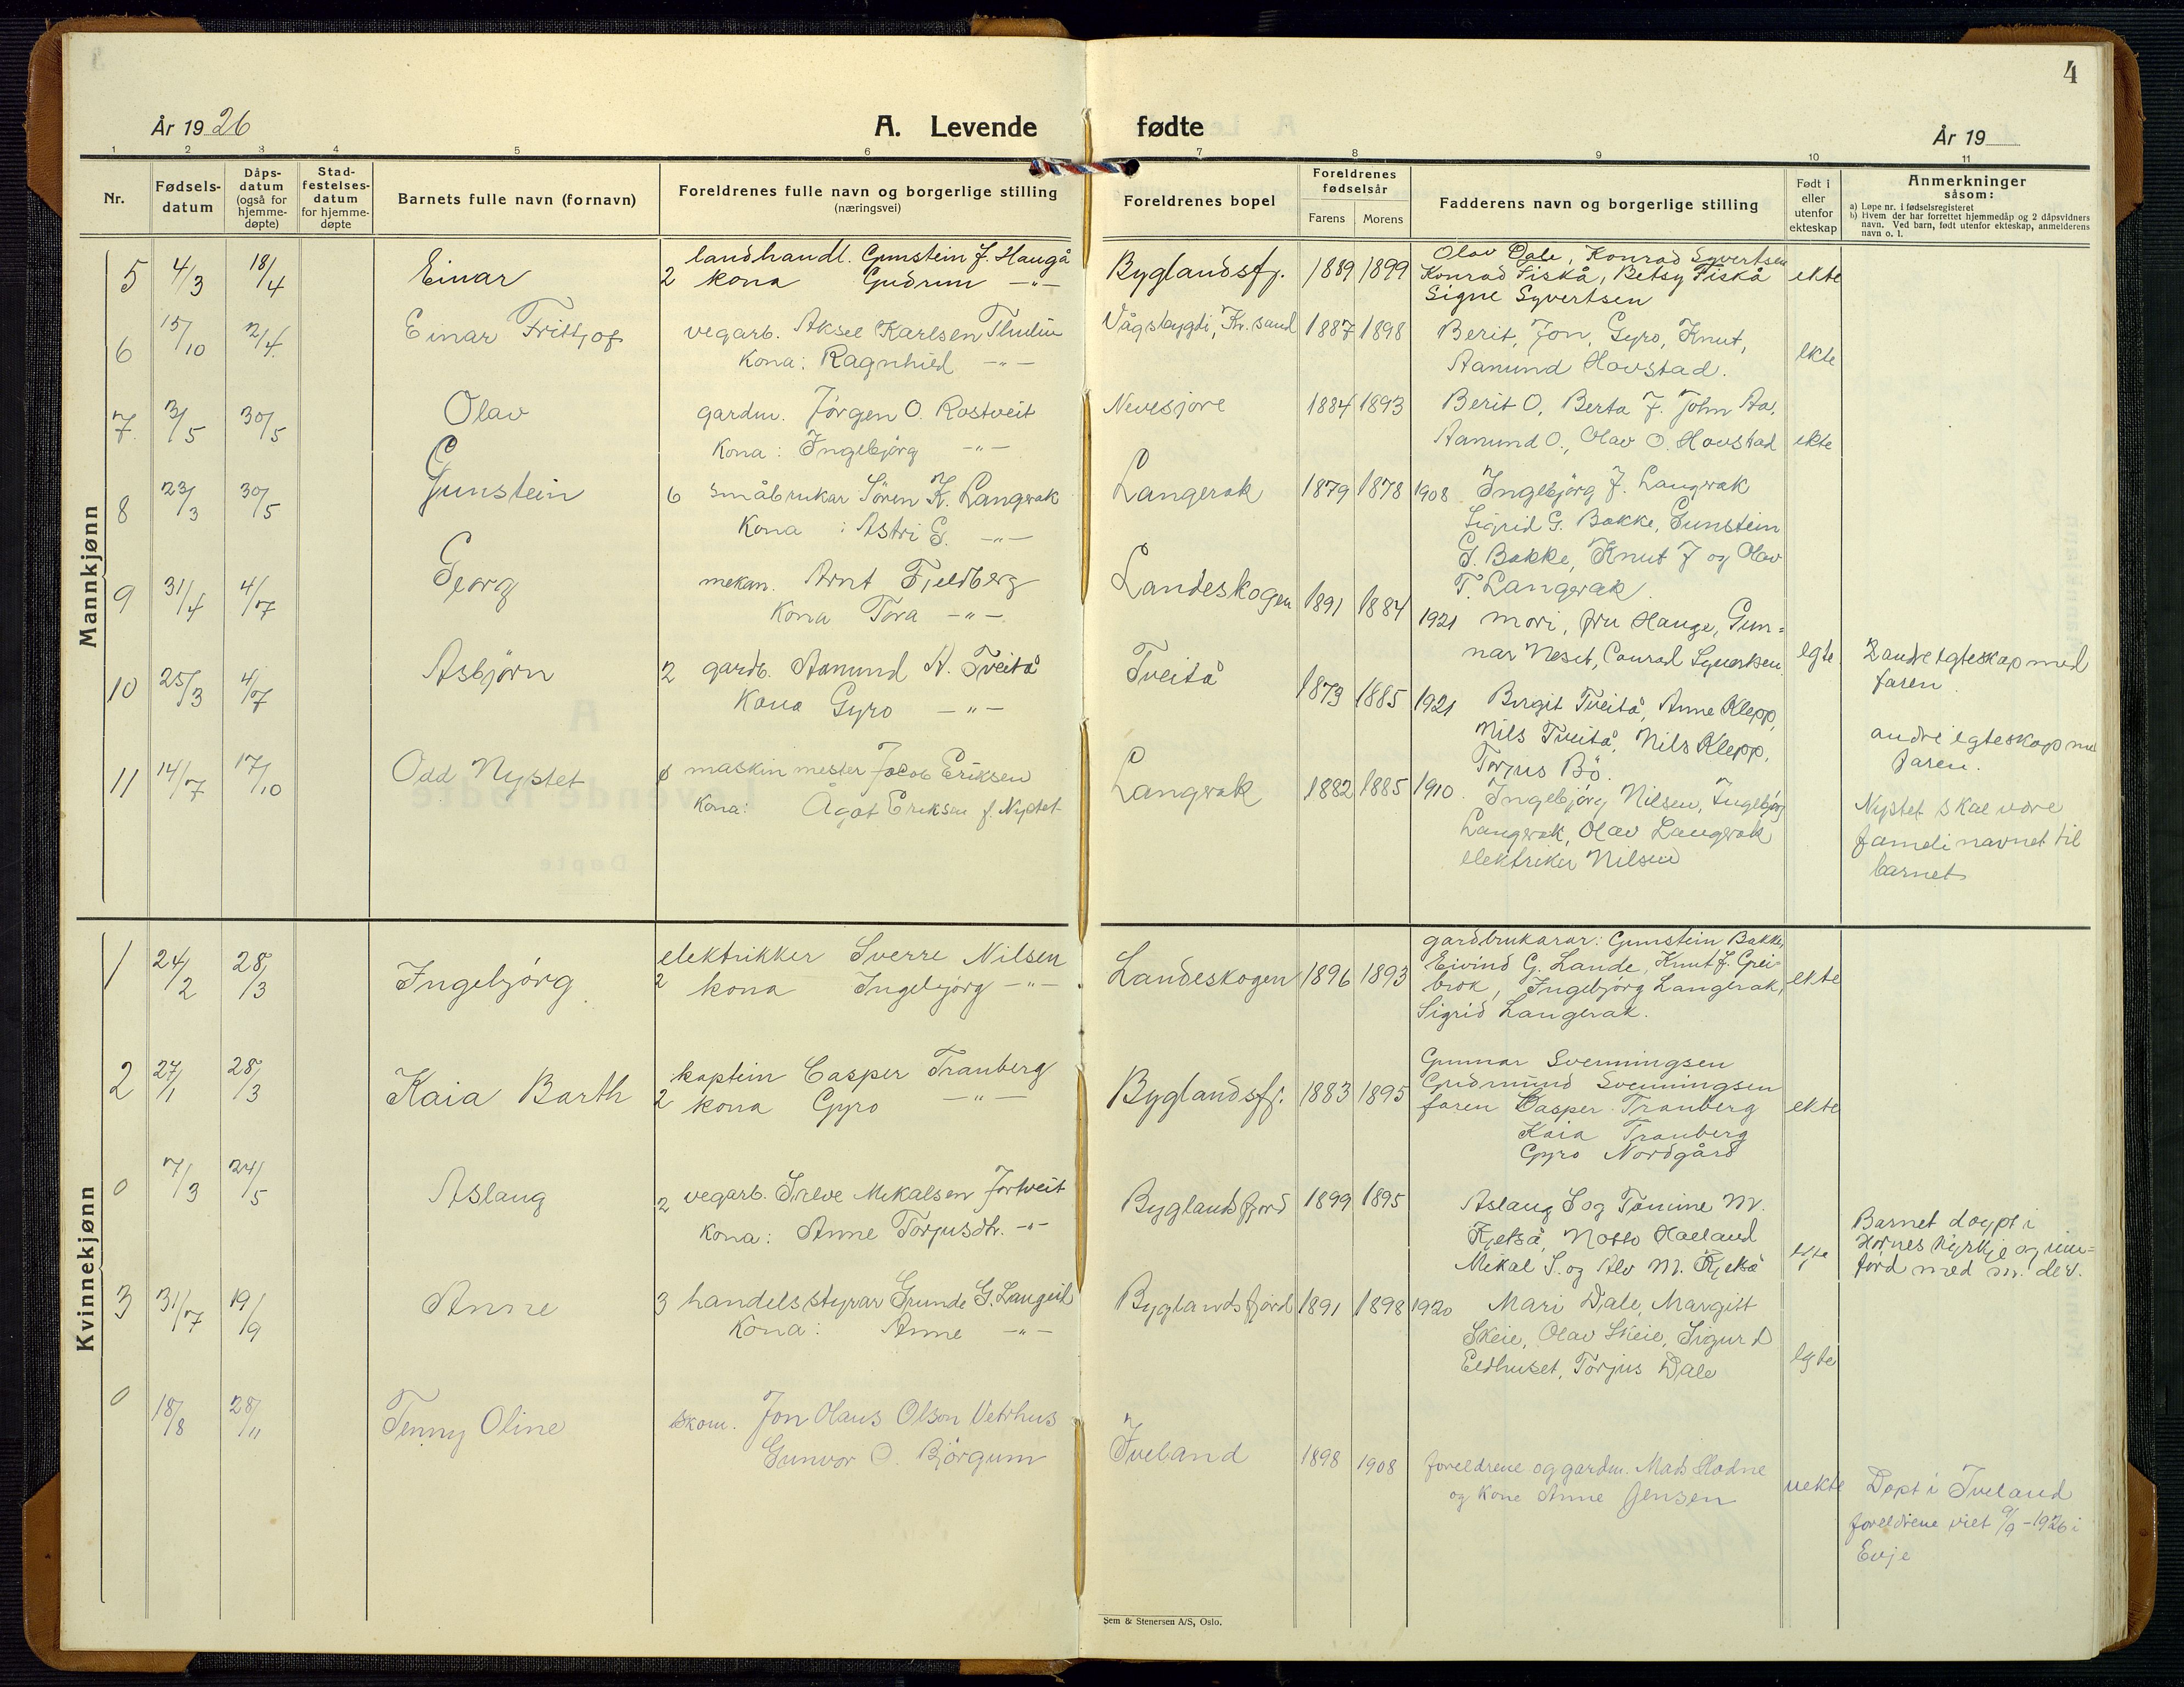 4
År 1926
A. Levende fødte
År 19
1 2 3 4 5 6 7 8 9 10 11
Nr.
Fødsels-
datum
Dåps-
datum
(også for
hjemme-
døpte)
Stad-
festelses-
datum
for hjemme-
døpte
Barnets fulle navn (fornavn)
Foreldrenes fulle navn og borgerlige stilling
(næringsvei)
Foreldrenes bopel
Foreldrenes
fødselsår
Farens Morens
Fadderens navn og borgerlige stilling
Født i
eller
utenfor
ekteskap
Anmerkninger
såsom:
a) Løpe nr. i fødselsregisteret
b) Hvem der har forrettet hjemmedåp og 2 dåpsvidners
navn. Ved barn, født utenfor ekteskap, anmelderens
navn o. l.
Mannkjønn
5 4/3 18/4 Einar
landhandl. Gunstein J. Haugå
2 kona Gudrun —"—
Byglandsfj. 1889 1899
Olav Dale, Konrad Syvertsen
Konrad Fiskå, Betsy Fiskå
Signe Syvertsen
ekte
6 15/10 2/4 Einar Frittjof
vegarb. Aksel Karlsen Thulin
Kona: Ragnhild —"—
Vågsbygdi, Kr.sand 1887 1898
Berit, Jon, Gyro, Knut,
Aanund Hovstad.
ekte
7 3/5 30/5 Olav
gardm. Jørgen O. Rostveit
Kona: Ingebjørg —"—
Nevesjore 1884 1893
Berit O, Berta J. John Aa.
Aanund O., Olav O. Hovstad
ekte
8 23/3 30/5 Gunstein
6 småbrukar Sören K. Langerak
Kona: Astri G. —"—
Langerak 1879 1878
1908 Ingebjørg J. Langerak
Sigrid G. Bakke, Gunstein
G. Bakke, Knut J og Olav
T. Langerak
9 31/4 4/7 Georg
mekan. Arnt Fjeldberg
Kona Tora —"—
Landeskogen 1891 1884
1921 mori, fru Hauge, Gun=
nar Neset, Conrad Syvertsen
egte
2 andre egteskap med
faren.
10 25/3 4/7 Asbjørn
2 gardb. Aanund A. Tveitå
Kona Gyro —"—
Tveitå 1873 1885
1921 Birgit Tveitå, Anne Klepp,
Nils Tveitå, Nils Klepp,
Torjus Bö.
andre egteskap med
faren.
11 14/7 17/10 Odd Nyptet
maskinmester Jacob Eriksen
Kona: Ågot Eriksen f. Nyptet
Langerak 1882 1885
1910 Ingebjörg Nilsen, Ingebjørg
Langerak, Olav Langerak
elektriker Nilsen
Nyptet skal være
familinavnet til
barnet
Kvinnekjønn
1 24/2 28/3 Ingebjörg
elektrikker Sverre Nilsen
2 kona Ingebjörg —"—
Landeskogen 1896 1893
gardbrukarar: Gunstein Bakke,
Eivind G. Lande, Knut J. Grei-
brok, Ingebjörg Langerak,
Sigrid Langerak.
ekte
2 27/1 28/3 Kaia Barth
kaptein Casper Tranberg
2 kona Gyro —"—
Byglandsfj. 1883 1895
Gunnar Svenningsen
Gudmund Svenningsen
faren Casper Tranberg
Kaia Tranberg
Gyro Nordgård
ekte
0 7/3 24/5 Aslaug
2 vegarb. Salve Mikalsen Jortveit
Kona: Anne Torjusdtr. —"—
Byglandsfjord 1899 1895
Aslaug S og Tomine M.
Kjetså, Notto Haeland
Mikal S. og Alv M. Kjetså
egte
Barnet døypt i
Hornes kyrkje og inn=
førd med nr. der.
3 31/7 19/9 Anne
3 handelsstyrar Grunde G. Langeid
Kona: Anne —"—
Byglandsfjord 1891 1898
1920 Mari Dale, Margitt
Skeie, Olav Skeie, Sigurd
Eldhuset, Torjus Dale
egte
0 18/8 28/11 Tenny Oline
skom. Jon Olaus Olson Vetrhus
Gunvor O. Björgum
Iveland 1898 1908
foreldrene og gardm. Mads Hodne
og kone Anne Jensen
uekte
Døpt i Iveland
foreldrene viet 9/9-1926 i
Evje
Sem & Stenersen A/S, Oslo.